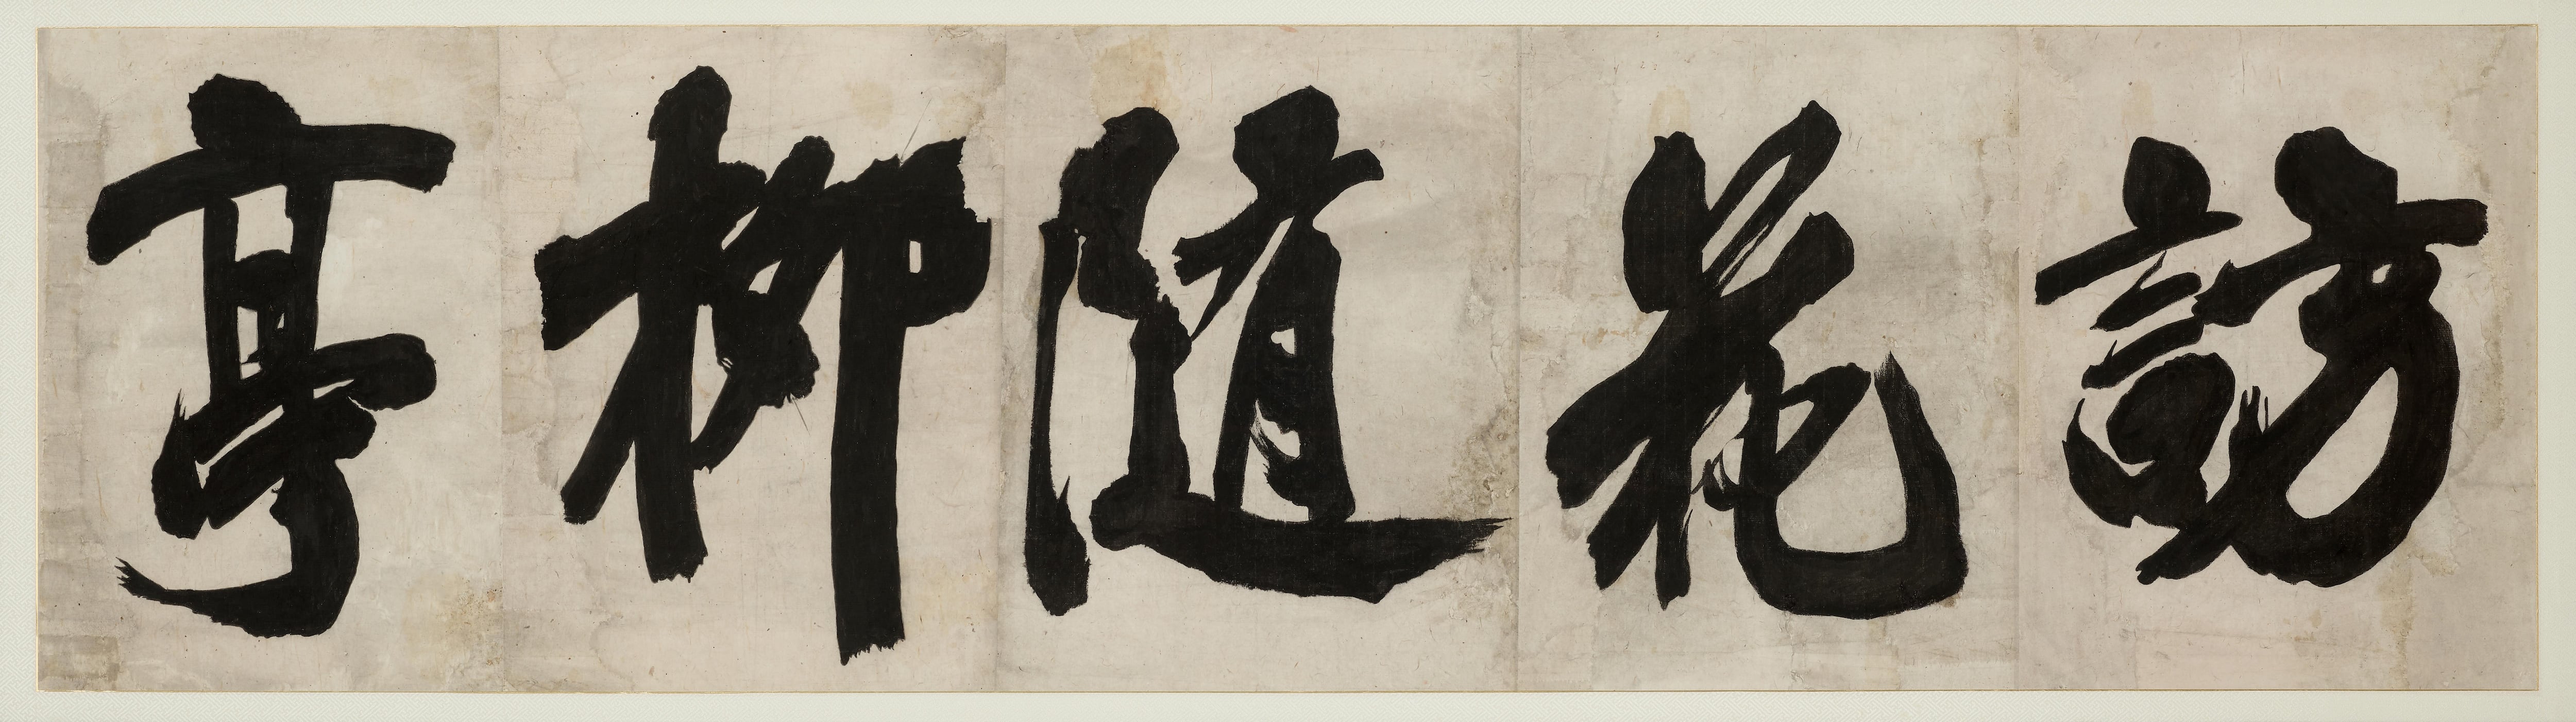 訪花随柳亭